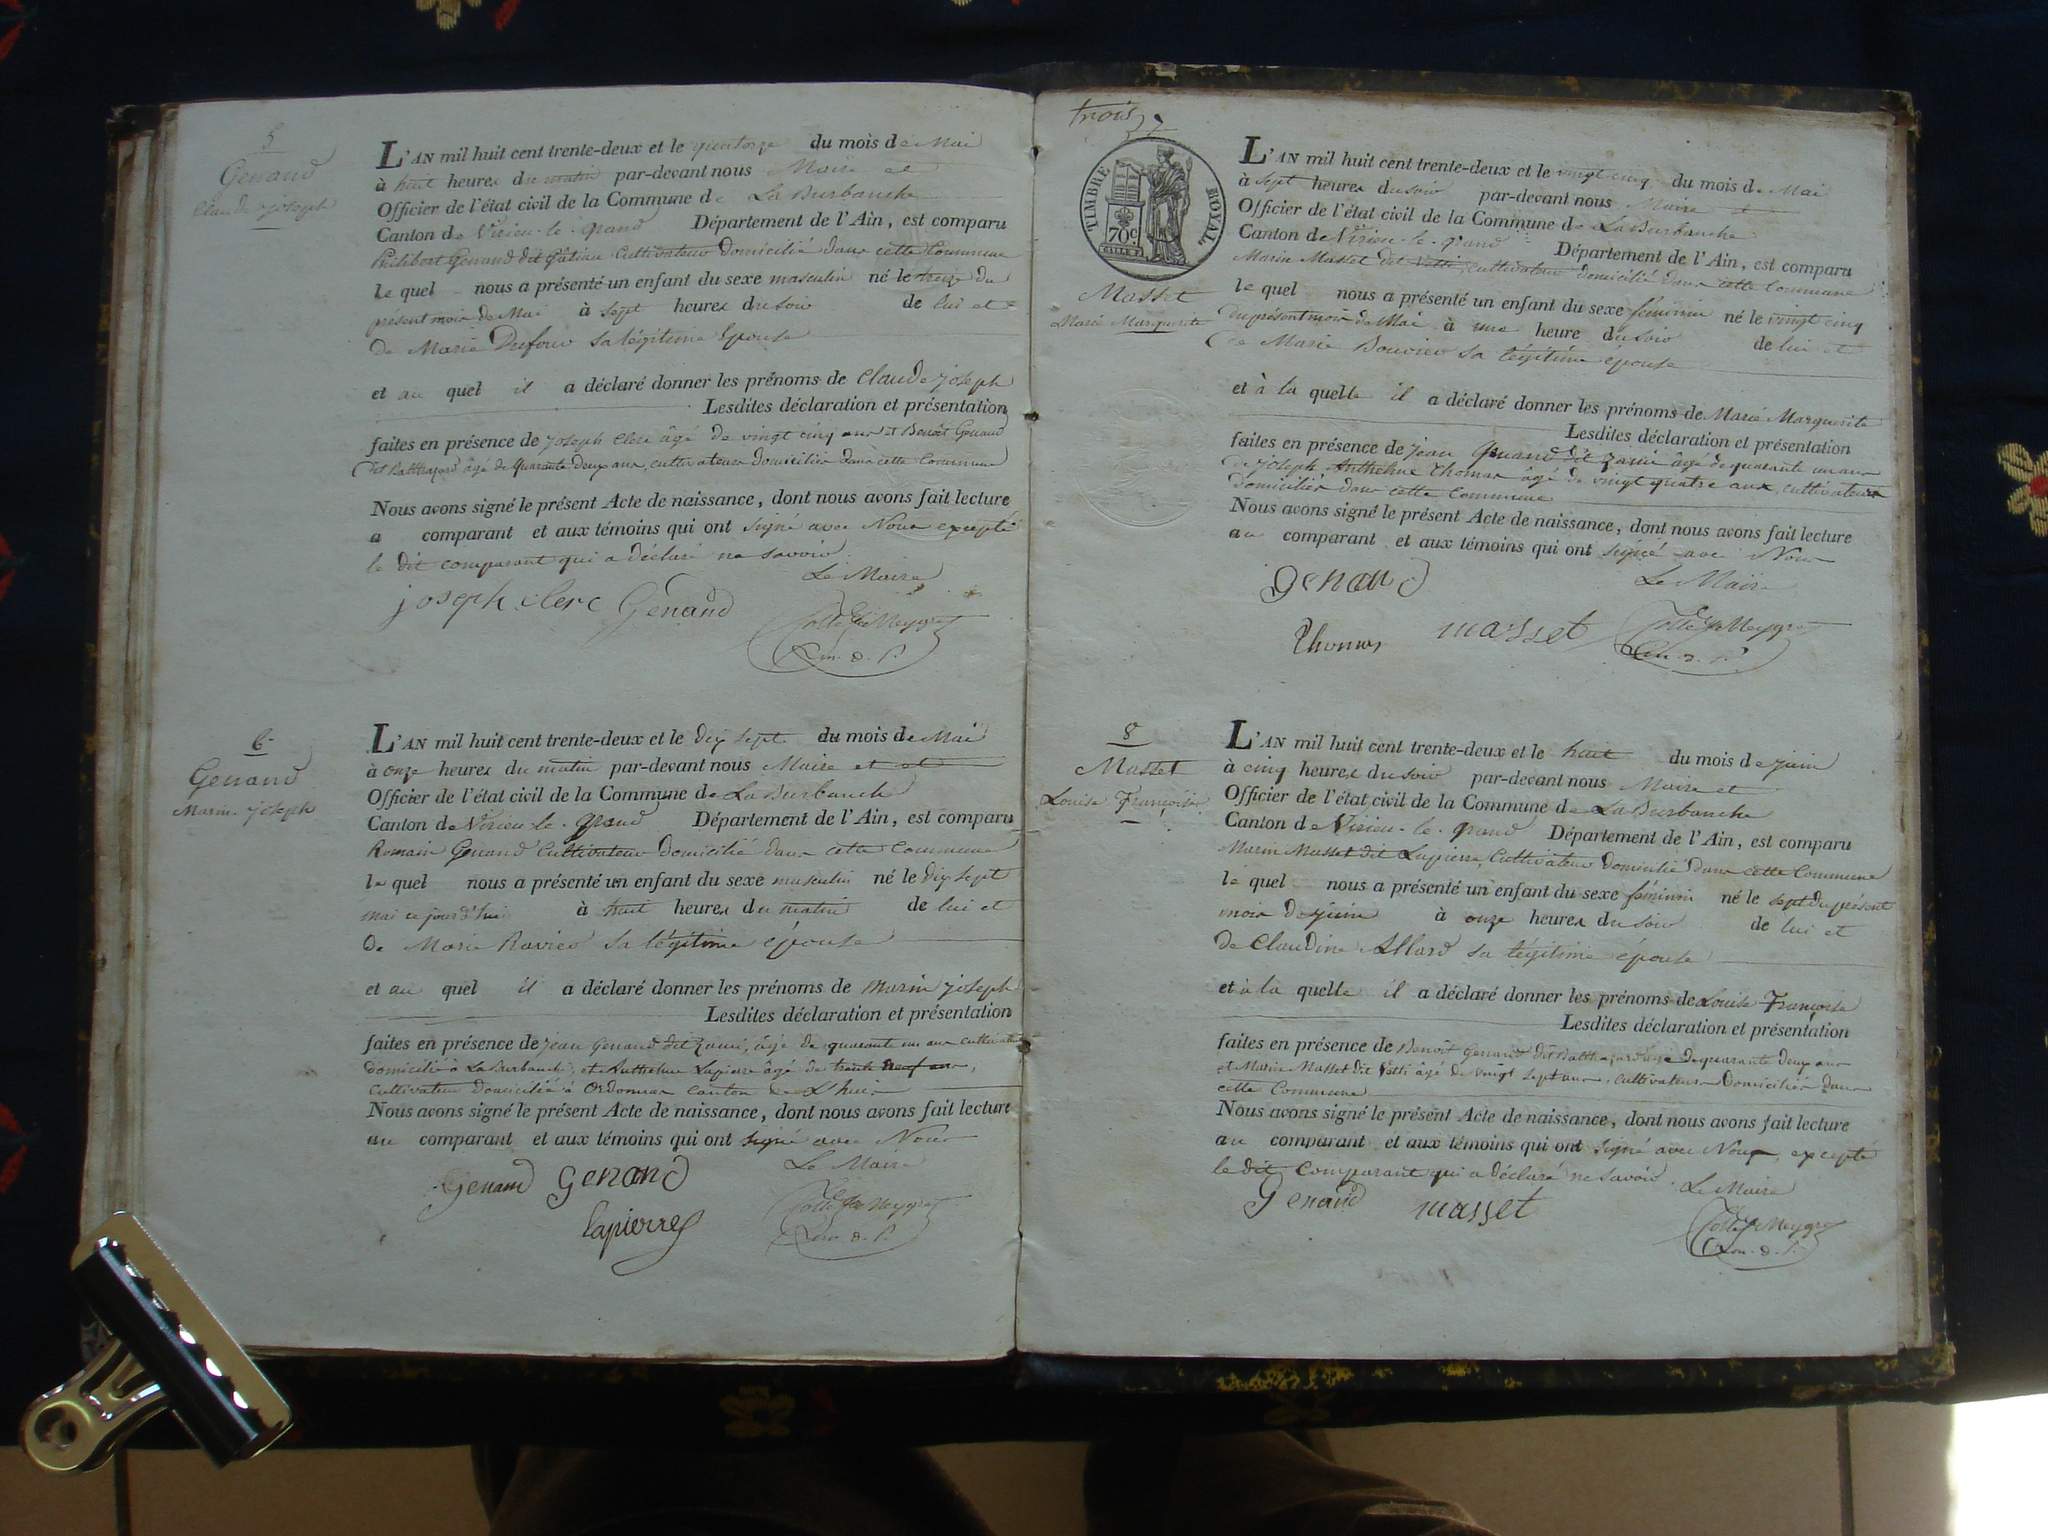 5
Genand
Claude joseph
L'AN mil huit cent trente-deux et le quatorze du mois de Mai
à huit heures du matin par-devant nous Maire et
Officier de l'état civil de la Commune de La Burbanche
Canton de Virieu-le-grand Département de l'Ain, est comparu
Philibert Genand dit Cultivateur domicilié dans cette Commune
le quel nous a présenté un enfant du sexe masculin né le treize du
présent mois de Mai à sept heures du soir de lui et
de Marie Dufour sa légitime épouse
et au quel il a déclaré donner les prénoms de Claude joseph
Lesdites déclaration et présentation
faites en présence de joseph Clerc âgé de vingt cinq ans et Benoît Genand
dit Balthazard âgé de quarante deux ans, cultivateurs domiciliés dans cette Commune
Nous avons signé le présent Acte de naissance, dont nous avons fait lecture
a comparant et aux témoins qui ont signé avec Nous excepté
le dit comparant qui a déclaré ne savoir.
Le Maire
joseph clerc Genand
6
Genand
Marin joseph
L'AN mil huit cent trente-deux et le dix sept du mois de Mai
à onze heures du matin par-devant nous Maire et
Officier de l'état civil de la Commune de La Burbanche
Canton de Virieu-le-grand Département de l'Ain, est comparu
Romain Genand Cultivateur domicilié dans cette Commune
le quel nous a présenté un enfant du sexe masculin né le dix sept
mai ce jourd'hui à huit heures du matin de lui et
de Marie Ravier sa légitime épouse
et au quel il a déclaré donner les prénoms de Marin joseph
Lesdites déclaration et présentation
faites en présence de jean Genand dit âgé de quarante un ans cultivateur
domicilié à La Burbanche, et Anthelme Lapierre âgé de trente neuf ans,
cultivateur domicilié à Ordonnas canton de L'huis
Nous avons signé le présent Acte de naissance, dont nous avons fait lecture
au comparant et aux témoins qui ont signé avec Nous
Le Maire
Genand Genand
Lapierre
trois
TIMBRE ROYAL
70c
Masset
Marie Marguerite
L'AN mil huit cent trente-deux et le vingt cinq du mois de Mai
à sept heures du soir par-devant nous Maire et
Officier de l'état civil de la Commune de La Burbanche
Canton de Virieu-le-grand Département de l'Ain, est comparu
Marin Masset dit Votti, cultivateur domicilié dans cette Commune
le quel nous a présenté un enfant du sexe féminin né le vingt cinq
du présent mois de Mai à une heure du soir de lui et
de Marie Bouvier sa légitime épouse
et à la quelle il a déclaré donner les prénoms de Marie Marguerite
Lesdites déclaration et présentation
faites en présence de jean Genand dit âgé de quarante un ans
de joseph Anthelme Thomas âgé de vingt quatre ans, cultivateurs
domiciliés dans cette Commune
Nous avons signé le présent Acte de naissance, dont nous avons fait lecture
au comparant et aux témoins qui ont signé avec Nous
Genand Le Maire
Thomas masset
8
Masset
Louise Françoise
L'AN mil huit cent trente-deux et le huit du mois de juin
à cinq heures du soir par-devant nous Maire et
Officier de l'état civil de la Commune de La Burbanche
Canton de Virieu-le-grand Département de l'Ain, est comparu
Marin Masset dit Lapierre, Cultivateur domicilié dans cette Commune
le quel nous a présenté un enfant du sexe féminin né le sept du présent
mois de juin à onze heures du soir de lui et
de Claudine Allard sa légitime épouse
et à la quelle il a déclaré donner les prénoms de Louise Françoise
Lesdites déclaration et présentation
faites en présence de Benoît Genand dit Balthazard âgé de quarante deux ans
et Marin Masset dit Votti âgé de vingt sept ans, cultivateurs domiciliés dans
cette Commune
Nous avons signé le présent Acte de naissance, dont nous avons fait lecture
au comparant et aux témoins qui ont signé avec Nous, excepté
le dit comparant qui a déclaré ne savoir.
Le Maire
Genand masset